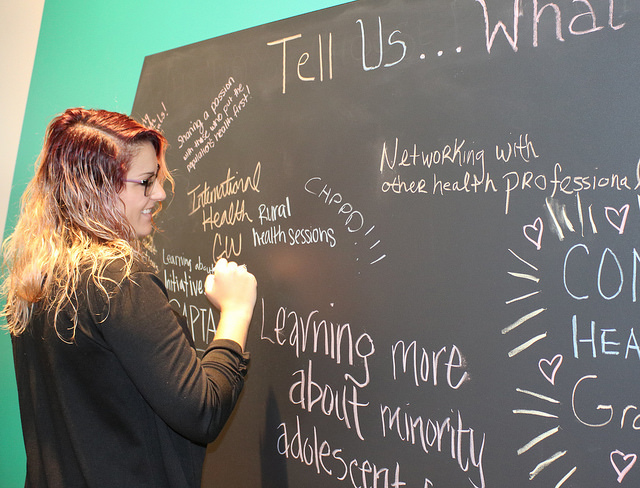 Tell Us... What
Sharing a passion
with those who put the
population's health first!
Networking with
other health professional
International
Health
CW
Rural
health sessions
CHPPD!!!
Learning about
initiative
CAPTA
Learning more
about minority
adolescent
CON
HEA
Gra